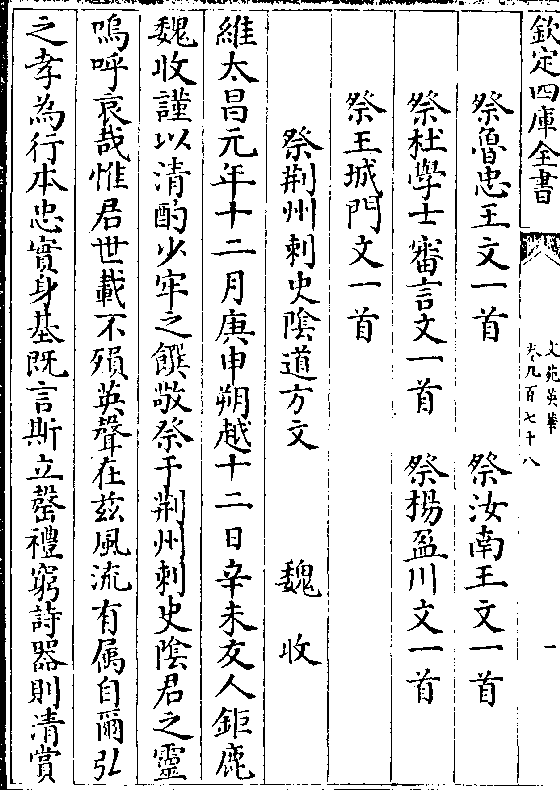 欽定四庫全書
文苑英華
卷九百七十八
一
祭魯忠王文一首
祭汝南王文一首
祭杜學士審言文一首
祭楊盈川文一首
祭王城門文一首
祭荆州刺史陰道方文
魏收
維太昌元年十二月庚申朔越十二日辛未友人鉅鹿
魏收謹以清酌少牢之饌敬祭于荆州刺史陰君之靈
嗚呼哀哉惟君世載不殞英聲在兹風流有屬自爾弘
之孝為行本忠實身基既言斯立罄禮窮詩器則清賞